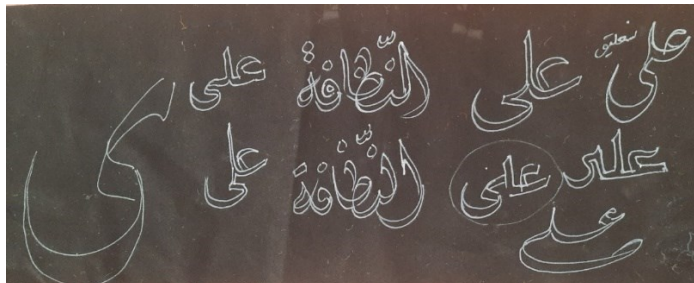 على نستعليق
على النظافة على
على
على النظافة على
على
ى